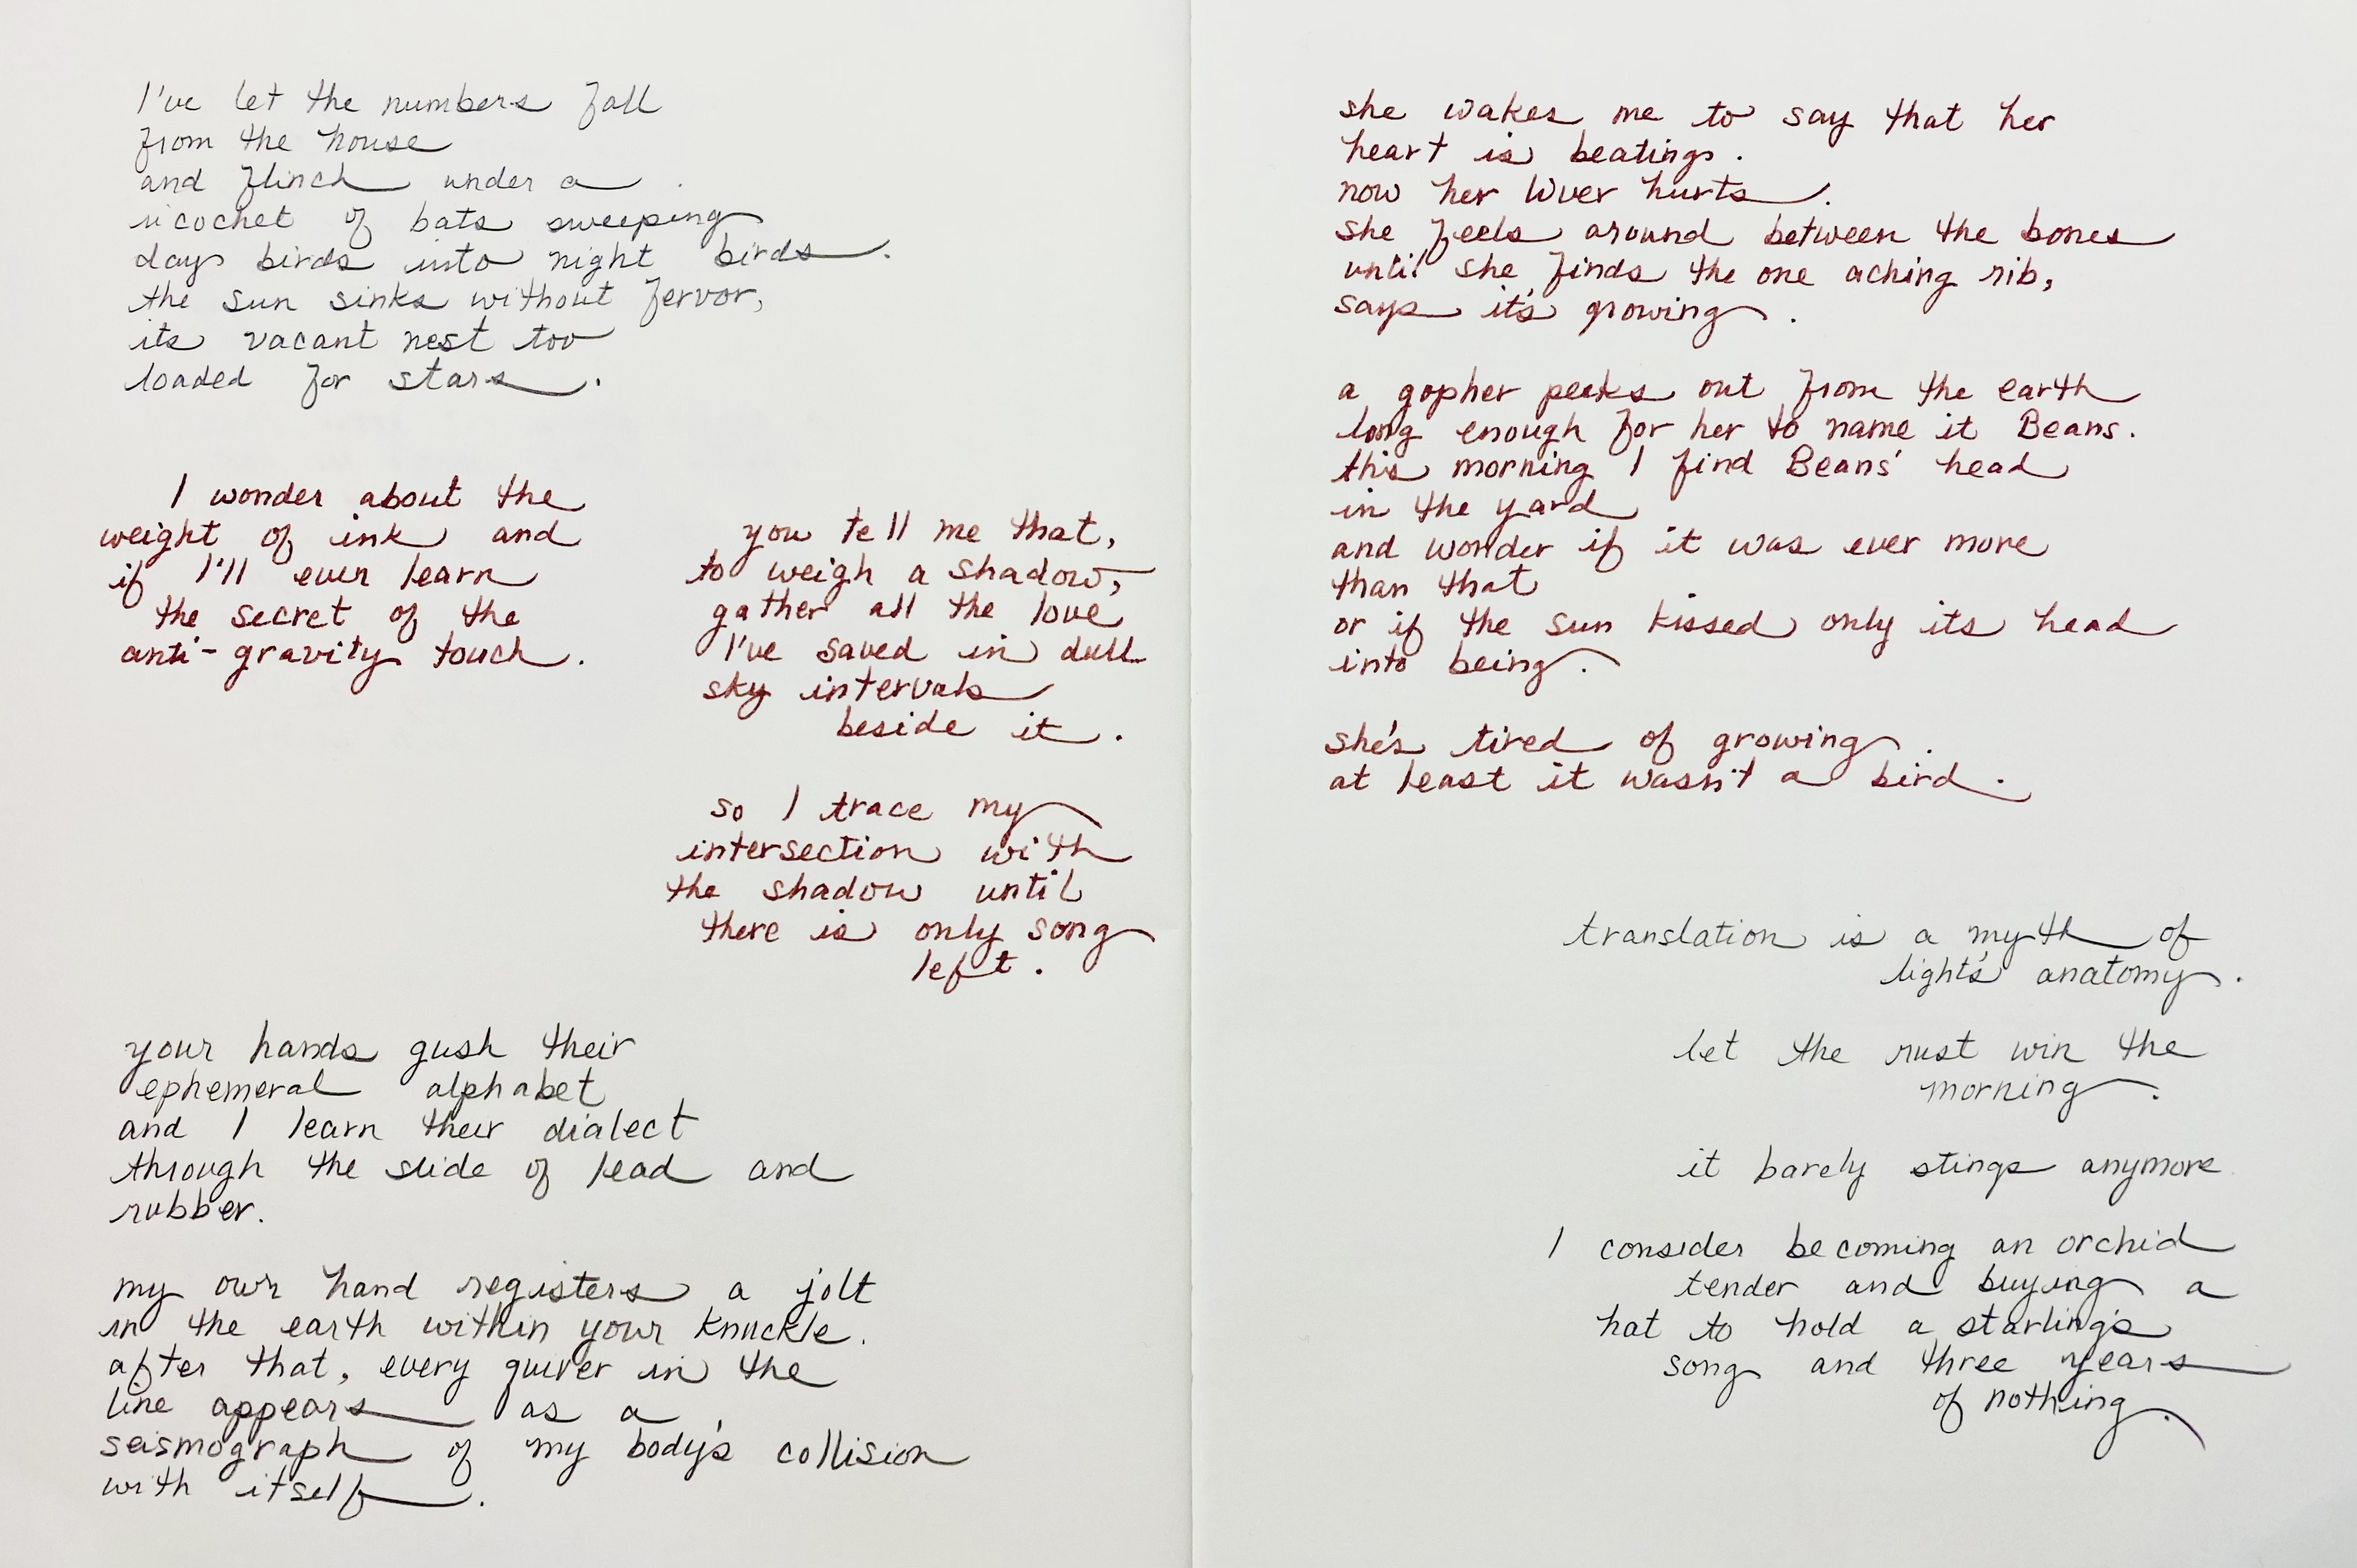 I've let the numbers fall
from the house
and flinch under a
ricochet of bats sweeping
days birds into night birds.
the sun sinks without fervor,
its vacant nest too
loaded for stars.
I wonder about the
weight of ink and
if I'll ever learn
the secret of the
anti-gravity touch.
you tell me that,
to weigh a shadow,
gather all the love
I've saved in dull
sky intervals
beside it.
so I trace my
intersection with
the shadow until
there is only song
left.
your hands gush their
ephemeral alphabet
and I learn their dialect
through the slide of lead and
rubber.
my own hand registers a jolt
in the earth within your knuckle.
after that, every quiver in the
line appears as a
seismograph of my body's collision
with itself.
she wakes me to say that her
heart is beating.
now her liver hurts.
she feels around between the bones
until she finds the one aching rib,
says it's growing.
a gopher peeks out from the earth
long enough for her to name it Beans.
this morning I find Beans' head
in the yard
and wonder if it was ever more
than that
or if the sun kissed only its head
into being.
she's tired of growing.
at least it wasn't a bird.
translation is a myth of
light's anatomy.
let the rust win the
morning.
it barely stings anymore
I consider becoming an orchid
tender and buying a
hat to hold a starling's
song and three years
of nothing.